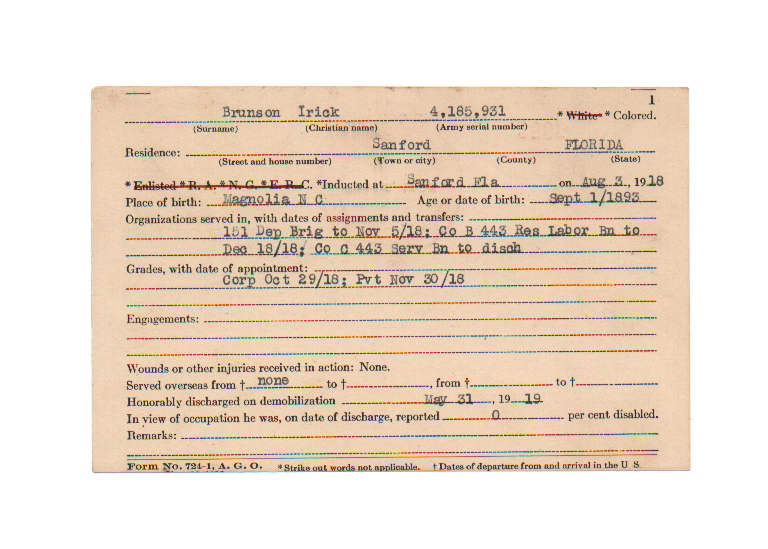 1
Brunson Irick 4,185,931 * White * Colored.
(Surname) (Christian name) (Army serial number)
Residence: Sanford FLORIDA
(Street and house number) (Town or city) (County) (State)
* Enlisted * R. A. * N. G. * E. R. C. *Inducted at Sanford Fla on Aug 3, 1918
Place of birth: Magnolia N C Age or date of birth: Sept 1/1893
Organizations served in, with dates of assignments and transfers:
151 Dep Brig to Nov 5/18; Co B 443 Res Labor Bn to
Dec 18/18; Co C 443 Serv Bn to disch
Grades, with date of appointment:
Corp Oct 29/18; Pvt Nov 30/18
Engagements:
Wounds or other injuries received in action: None.
Served overseas from † none to †, from † to †
Honorably discharged on demobilization May 31, 1919
In view of occupation he was, on date of discharge, reported 0 per cent disabled.
Remarks:
Form No. 724-1, A. G. O. *Strike out words not applicable. † Dates of departure from and arrival in the U S.